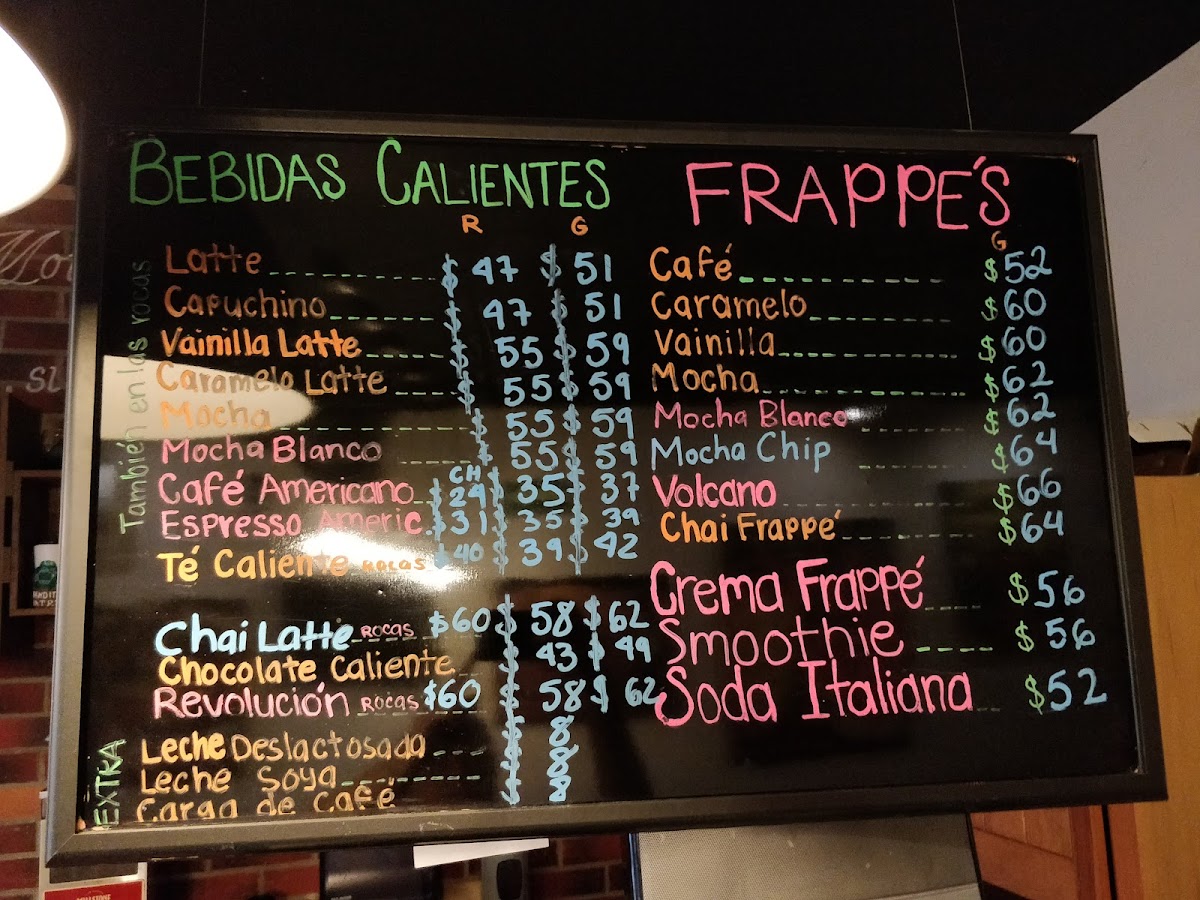 BEBIDAS CALIENTES
R G
También en las rocas
Latte $ 47 $ 51
Capuchino $ 47 $ 51
Vainilla Latte $ 55 $ 59
Caramelo Latte $ 55 $ 59
Mocha $ 55 $ 59
Mocha Blanco $ 55 $ 59
CH
Café Americano $ 29 $ 35 $ 37
Espresso Americ. $ 31 $ 35 $ 39
Té Caliente ROCAS $ 40 $ 39 $ 42
Chai Latte ROCAS $ 60 $ 58 $ 62
Chocolate Caliente $ 43 $ 49
Revolución ROCAS $60 $ 58 $ 62
EXTRA
Leche Deslactosada $ 8
Leche Soya $ 8
Carga de Café $ 8
FRAPPE´S
G
Café $ 52
Caramelo $ 60
Vainilla $ 60
Mocha $ 62
Mocha Blanco $ 62
Mocha Chip $ 64
Volcano $ 66
Chai Frappé $ 64
Crema Frappé $ 56
Smoothie $ 56
Soda Italiana $ 52